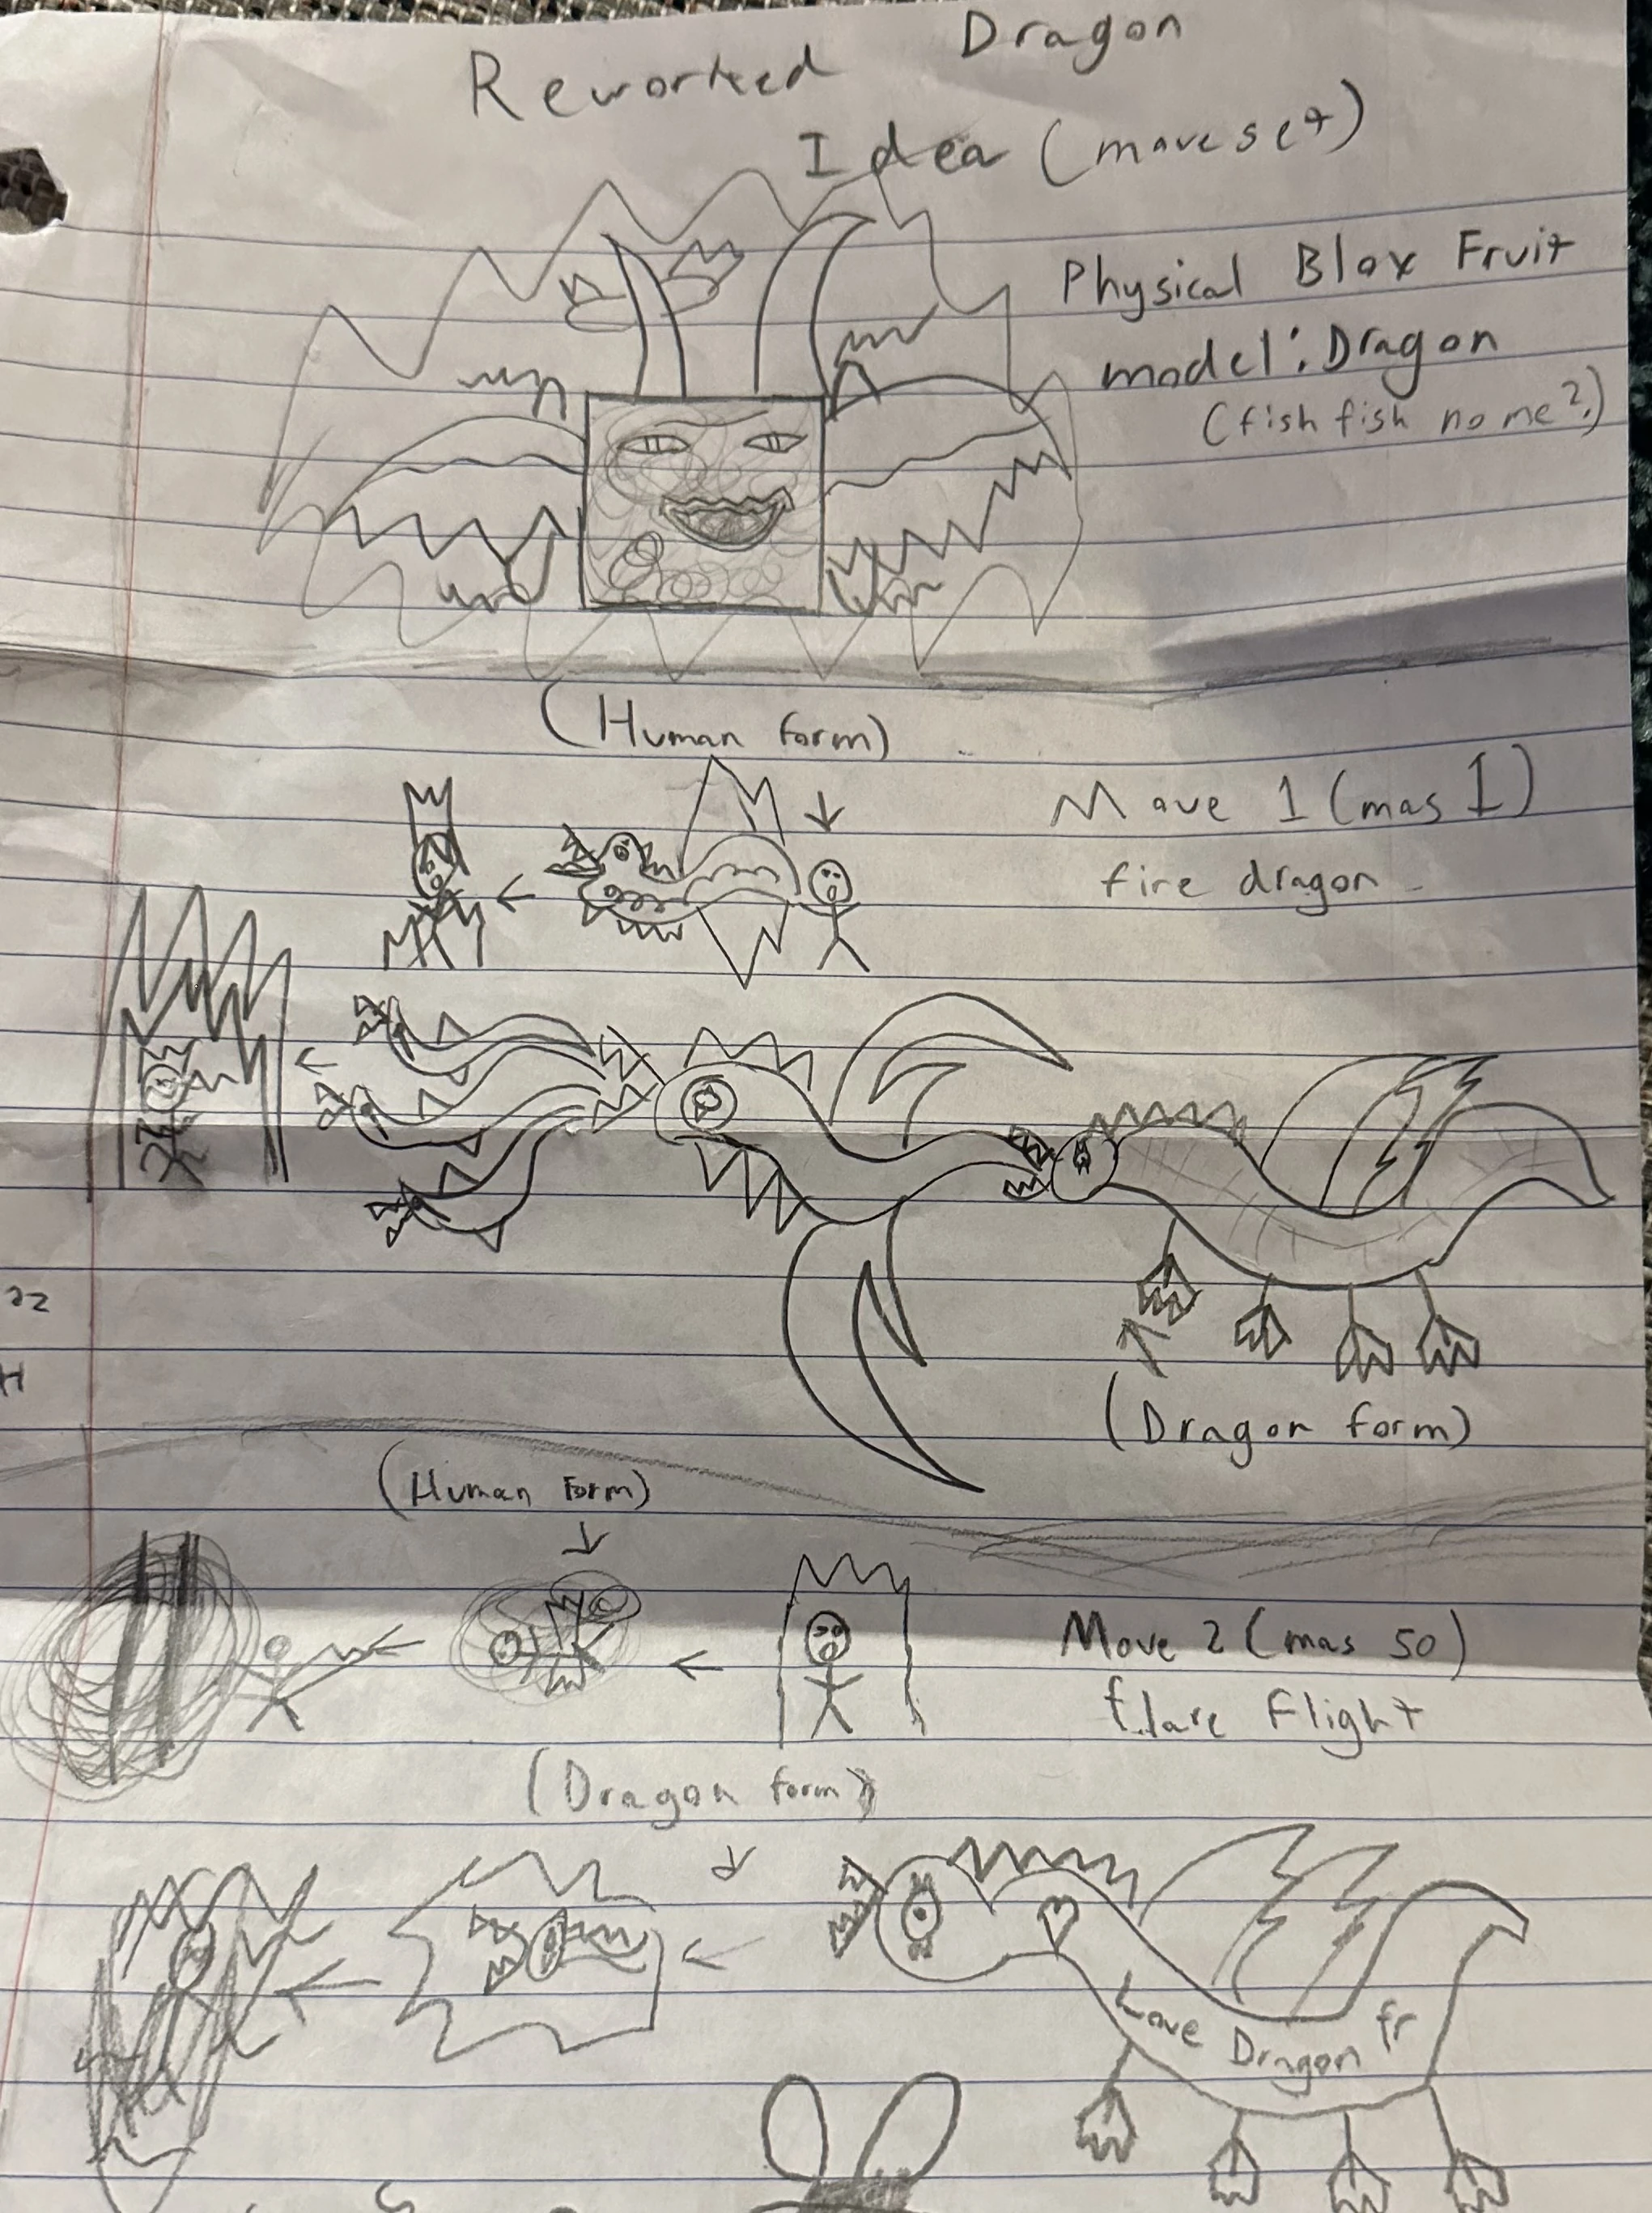 Reworked Dragon
Idea (moveset)
Physical Blox Fruit
model: Dragon
(fish fish no me?)
(Human form)
Move 1 (mas 1)
fire dragon
(Dragon form)
(Human form)
Move 2 (mas 50)
flare flight
(Dragon form)
Love Dragon fr